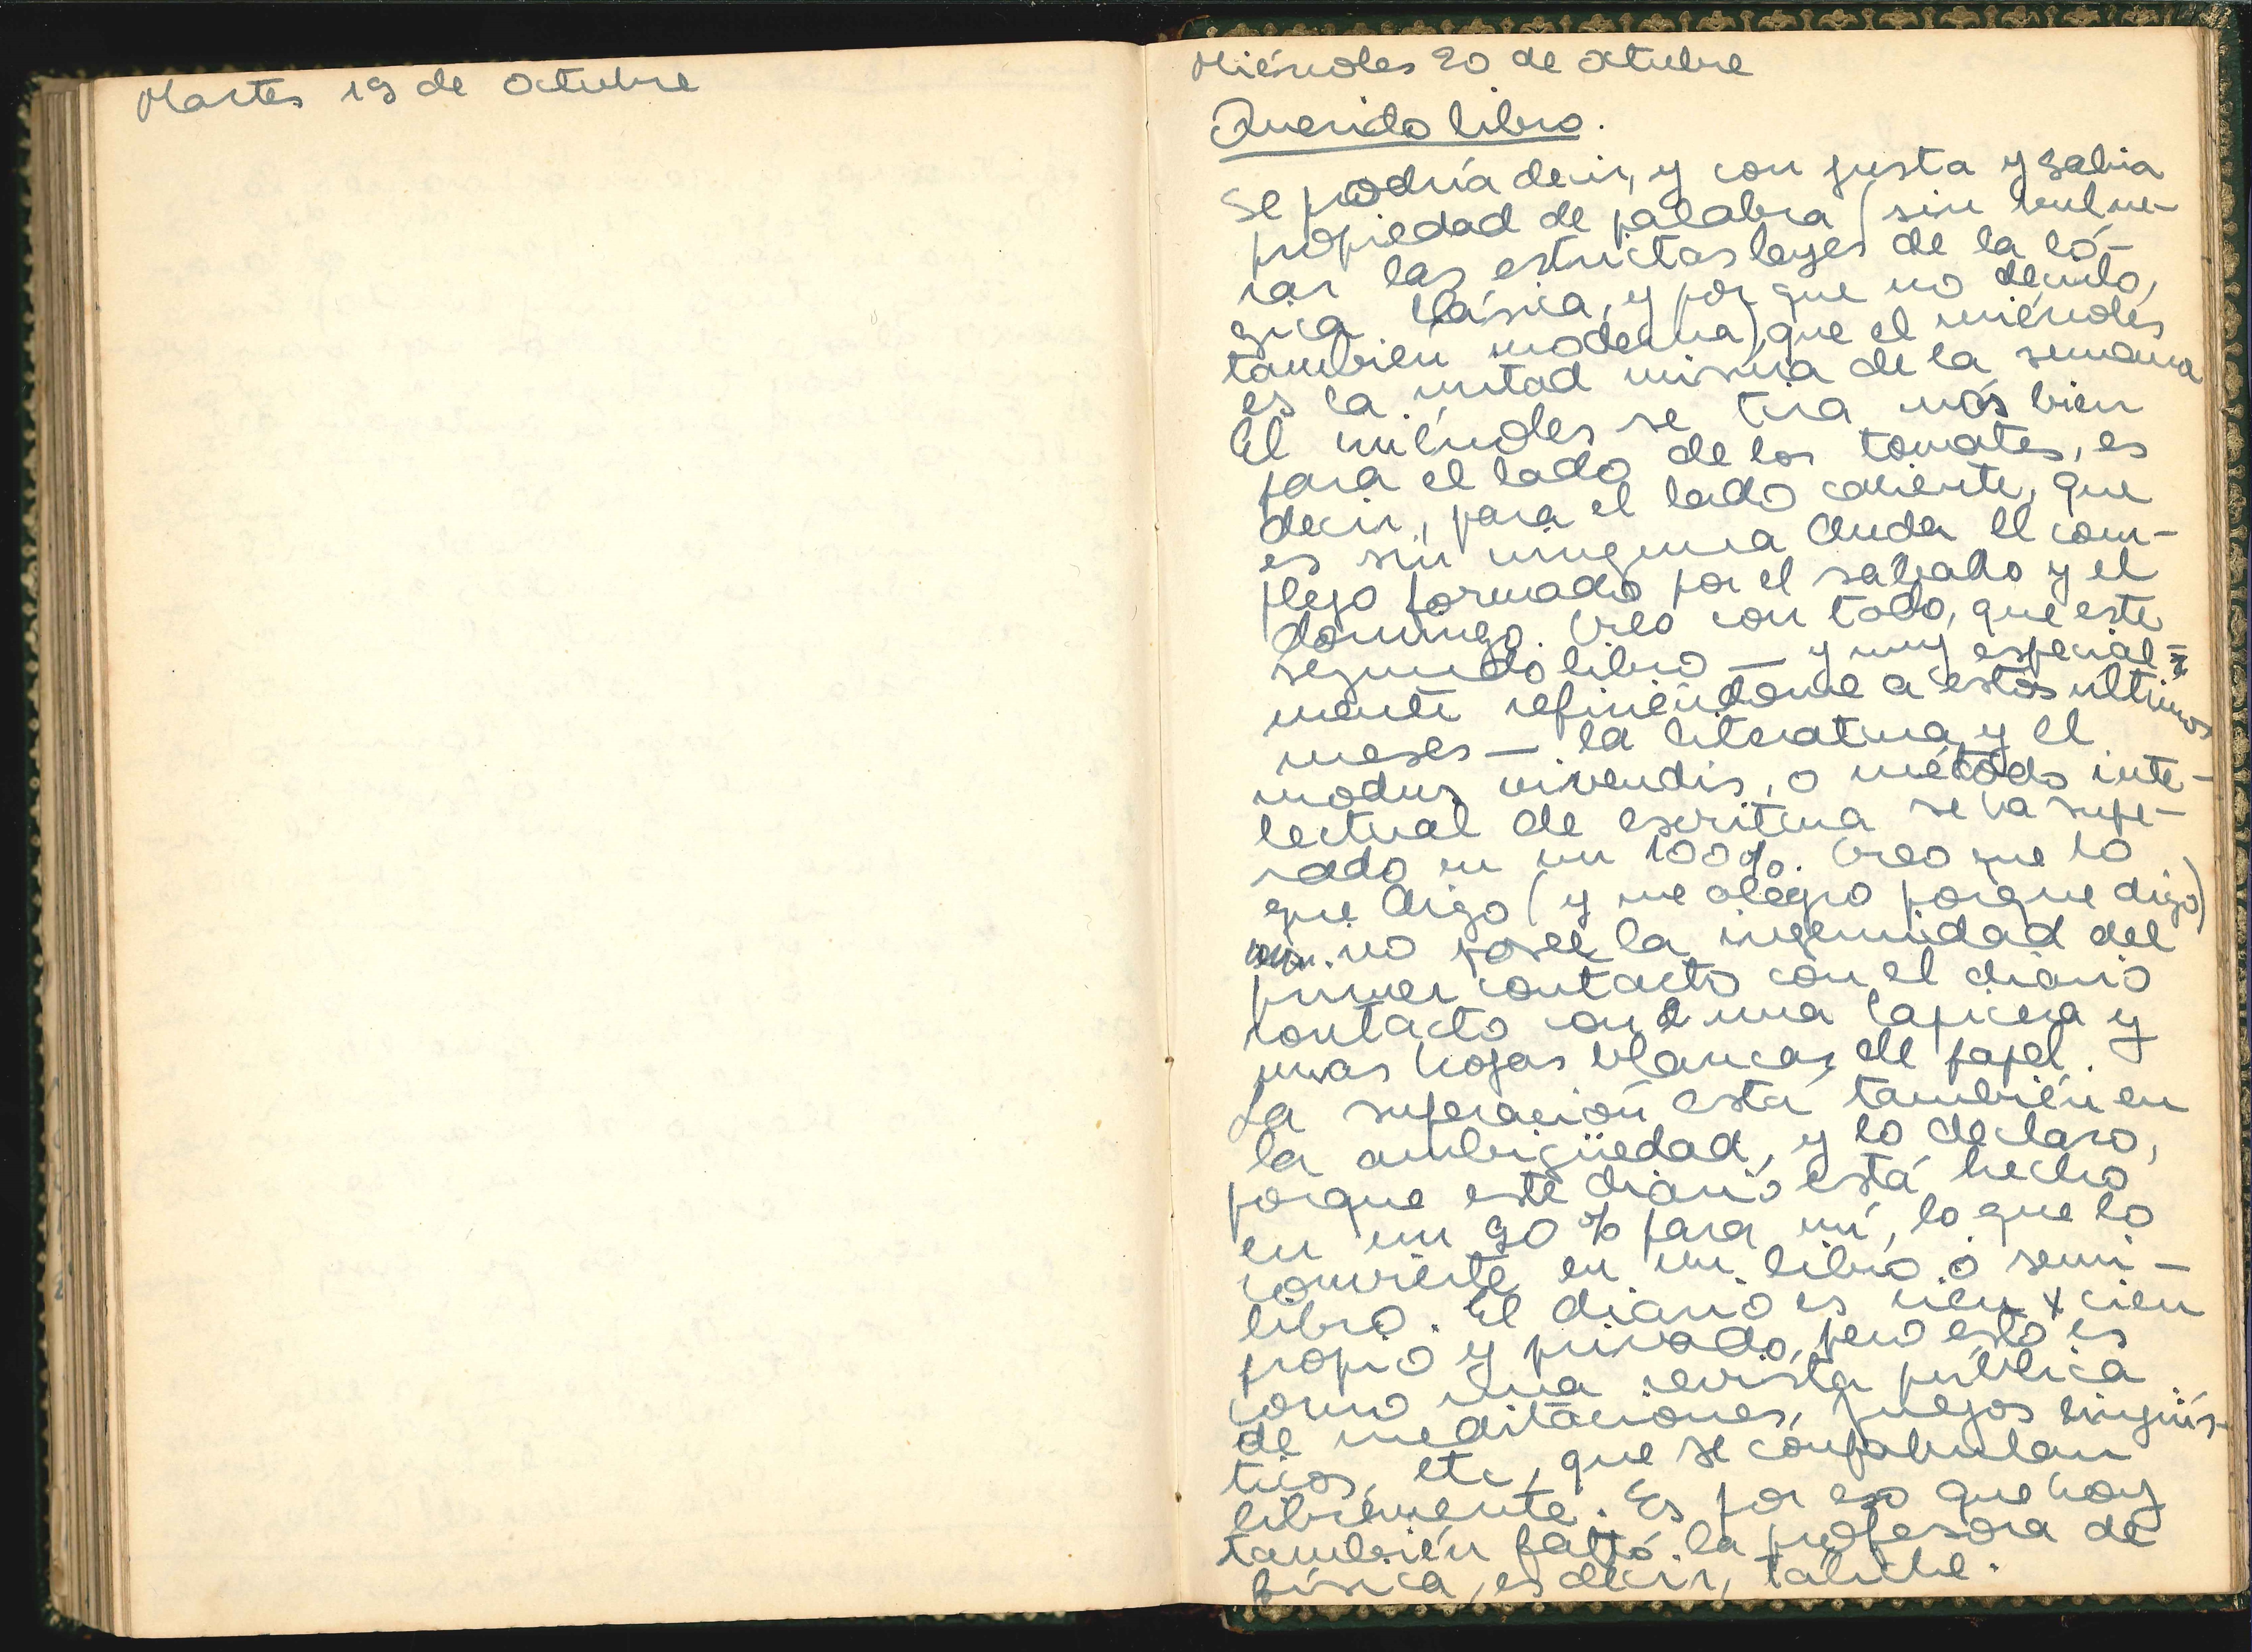 Martes 19 de octubre
Miércoles 20 de octubre
Querido libro.
Se podría decir, y con justa y sabia
propiedad de palabra (sin vulne-
rar las estrictas leyes de la ló-
gica clásica, y por que no decirlo,
también moderna), que el miércoles
es la mitad misma de la semana
El miércoles se tira más bien
para el lado de los tomates, es
decir, para el lado caliente, que
es sin ninguna duda el com-
plejo formado por el sabado y el
domingo. Creo con todo, que este
segundo libro — y muy especial-
mente refiriéndome a estos ultimos
meses — la literatura y el
modus vivendis, o método inte-
lectual de escritura se ha supe-
rado en un 100%. Creo que lo
que digo (y me alegro porque digo)
no posee la ingenuidad del
primer contacto con el diario
contacto con una lapicera y
unas hojas blancas de papel.
La superación está también en
la ambigüedad, y lo declaro,
porque este diario está hecho
en un 90% para mí, lo que lo
convierte en un libro o semi-
libro. El diario es cien x cien
propio y privado, pero esto es
como una revista pública
de meditaciones, juegos lingüís-
ticos, etc, que se confabulan
libremente. Es por eso que hoy
también faltó la profesora de
física, es decir, tabique.